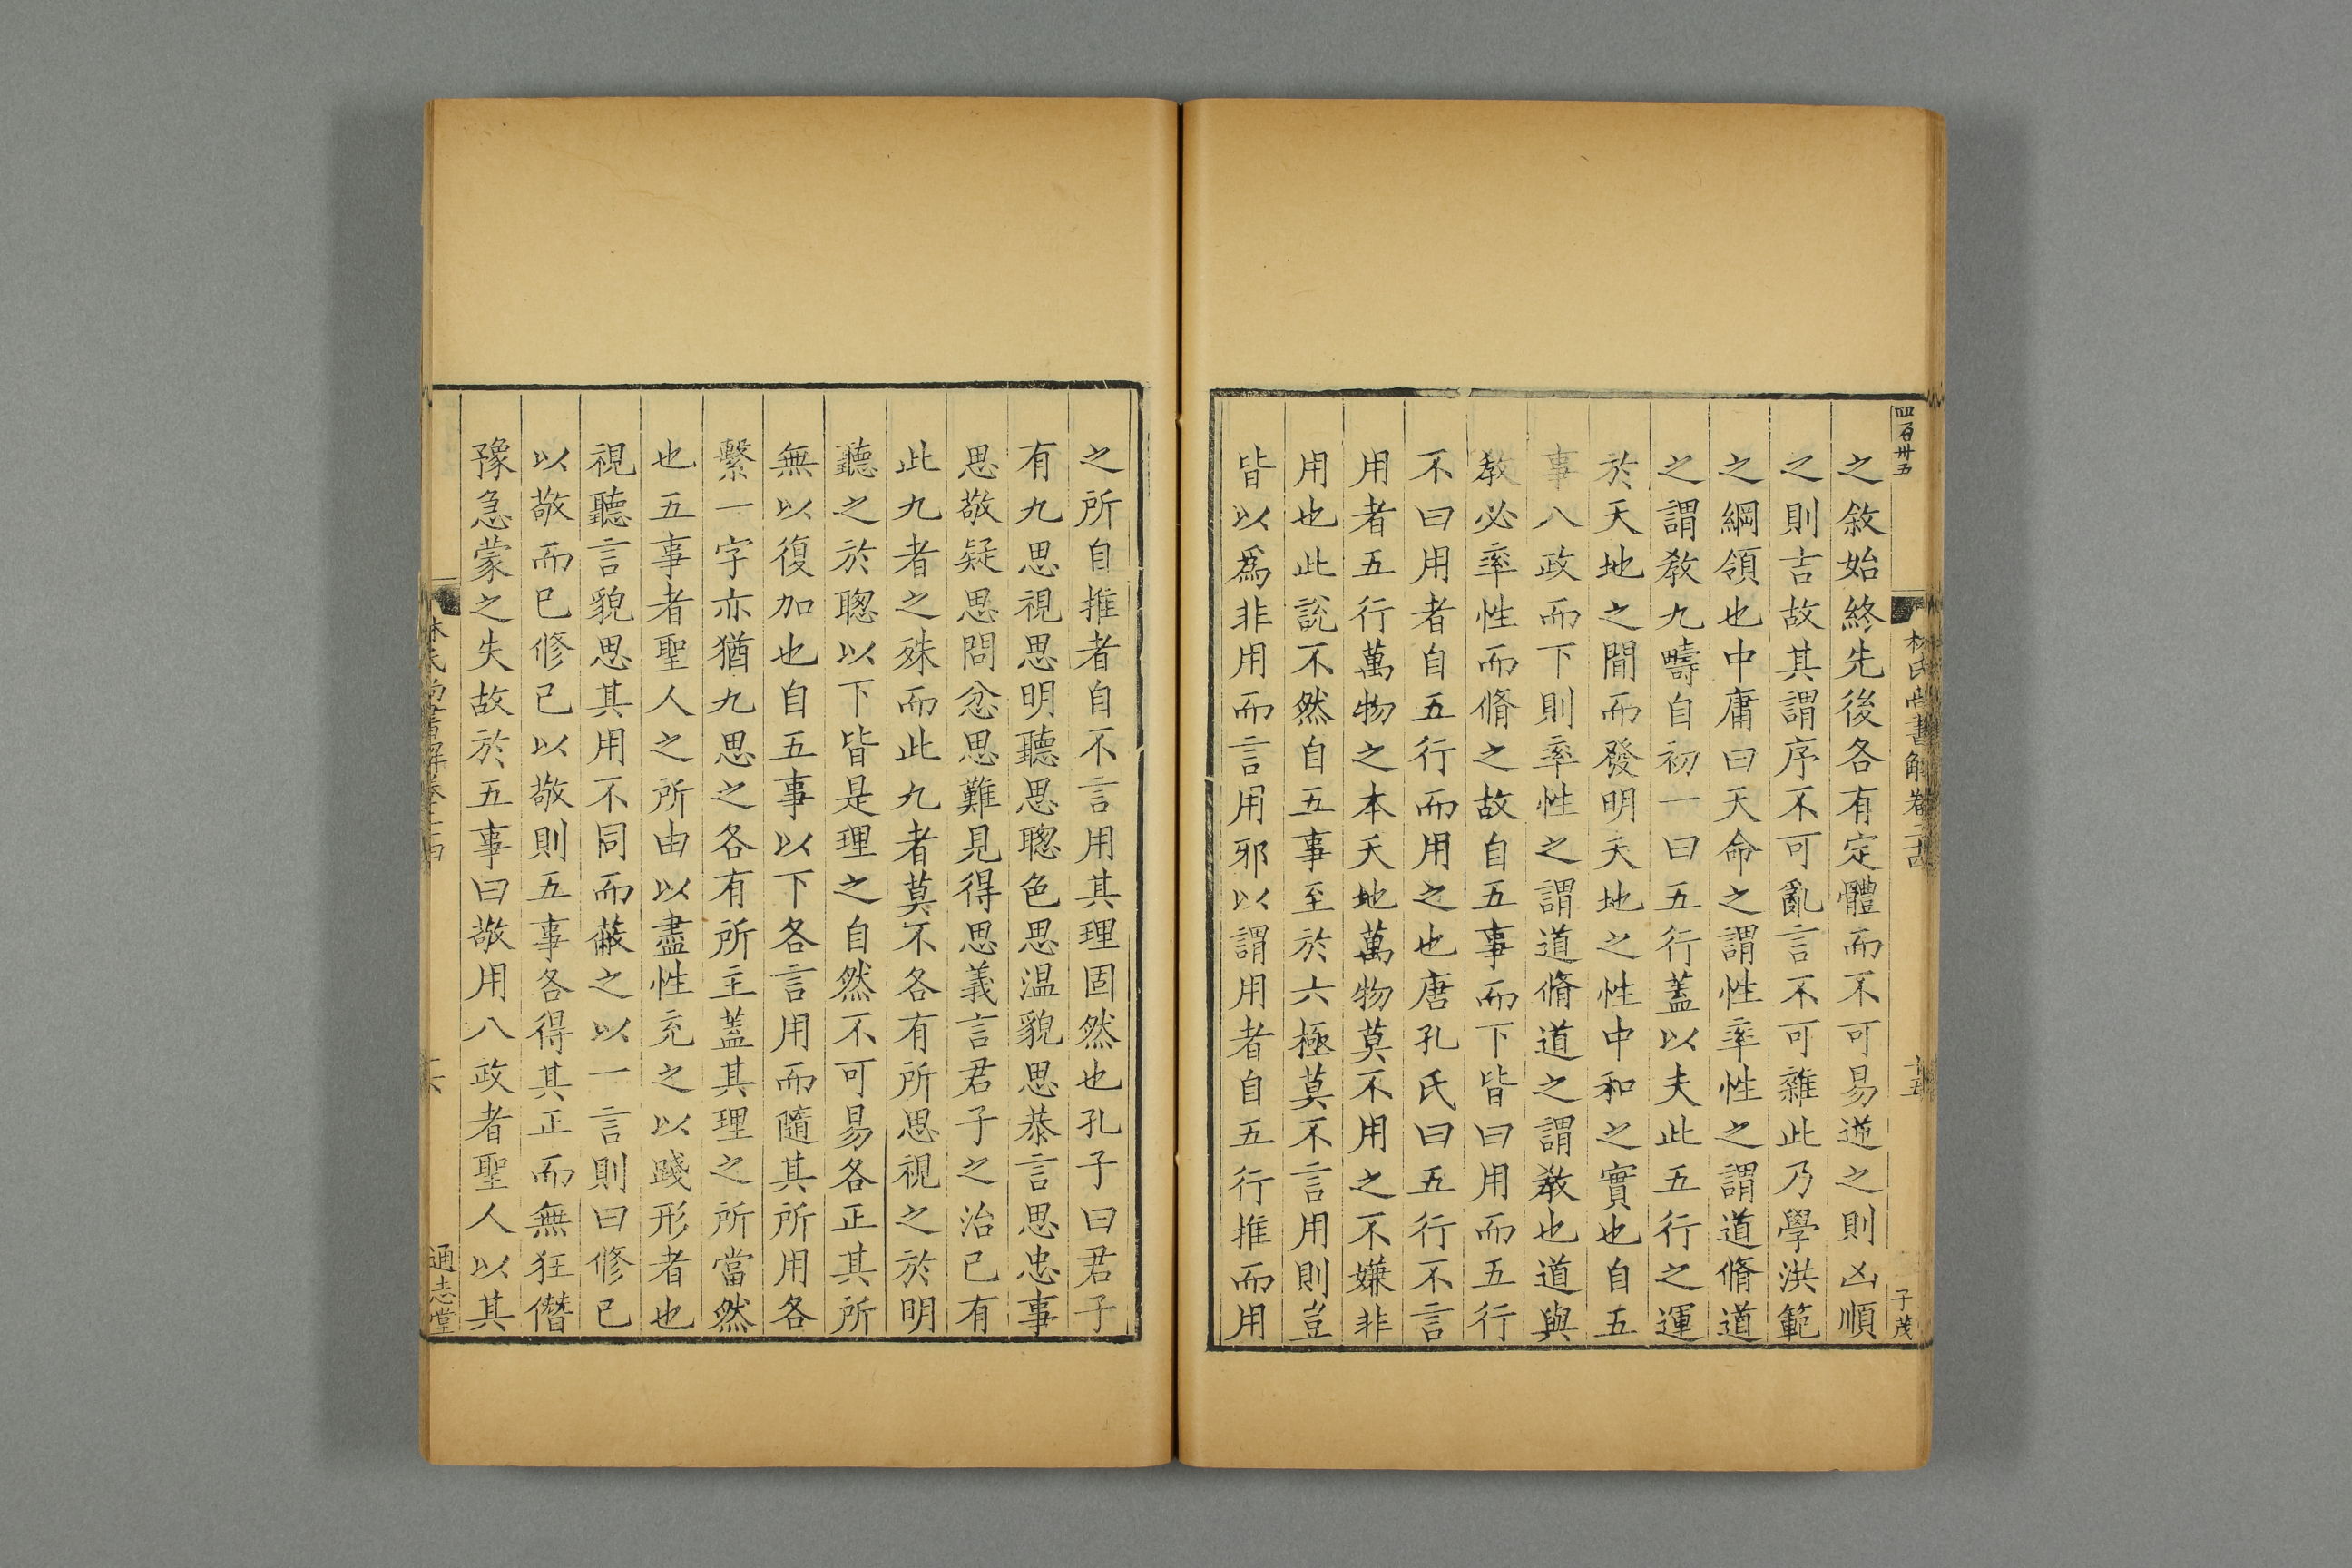 四百卅五
林氏尚書解卷二古
十五
子茂
之敘始終先後各有定體而不可易逆之則凶順
之則吉故其謂序不可亂言不可雜此乃學洪範
之綱領也中庸曰天命之謂性率性之謂道脩道
之謂教九疇自初一曰五行蓋以夫此五行之運
於天地之間而發明天地之性中和之實也自五
事八政而下則率性之謂道脩道之謂教也道與
教必率性而脩之故自五事而下皆曰用而五行
不曰用者自五行而用之也唐孔氏曰五行不言
用者五行萬物之本天地萬物莫不用之不嫌非
用也此說不然自五事至於六極莫不言用則豈
皆以爲非用而言用邪以謂用者自五行推而用
之所自推者自不言用其理固然也孔子曰君子
有九思視思明聽思聰色思温貌思恭言思忠事
思敬疑思問忿思難見得思義言君子之治己有
此九者之殊而此九者莫不各有所思視之於明
聽之於聰以下皆是理之自然不可易各正其所
無以復加也自五事以下各言用而隨其所用各
繫一字亦猶九思之各有所主蓋其理之所當然
也五事者聖人之所由以盡性充之以踐形者也
視聽言貌思其用不同而蔽之以一言則曰修已
以敬而已修己以敬則五事各得其正而無狂僭
豫急蒙之失故於五事曰敬用八政者聖人以其
通志堂